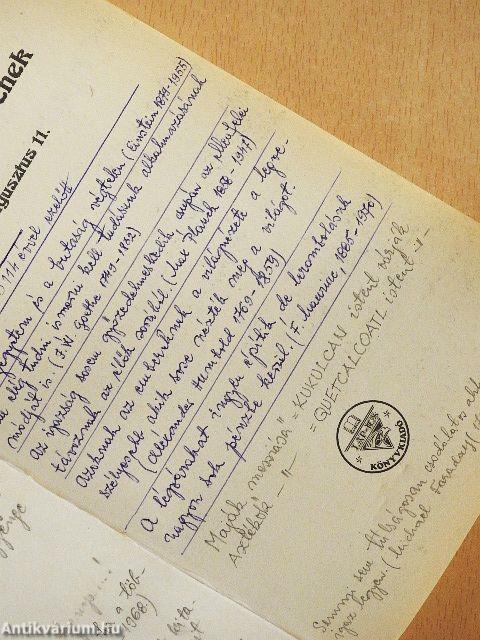 enek
gusztus 11.
114 évvel ezelőtt
és a butaság végtelen (Einstein 1879-1955)
elég tudni, is merni kell tudásunk alkalmazásának
módját is. (J. W. Goethe 1749-1832)
az igazság sosem győzedelmeskedik, csupán az ellenfelei
távoznak az élők sorából. (Max Planck 1858-1947)
azoknak az embereknek a világnézete a legve-
szélyesebb akik sose nézték meg a világot.
(Alexander Humbold 1769-1859)
A légvárakat ingyen építik, de lerombolásuk
nagyon sok pénzbe kerül. (F. 1885-1970)
Maják messiása = KUKULCAN istent várják
Aztékok - " - = QUETCALCOATL istent -"-
KÖNYVKIADÓ
Semmi sem túlságosan csodálatos ahh
igaz legyen. (Michael Faraday)
a töb-
1968)
Antikvárium.hu